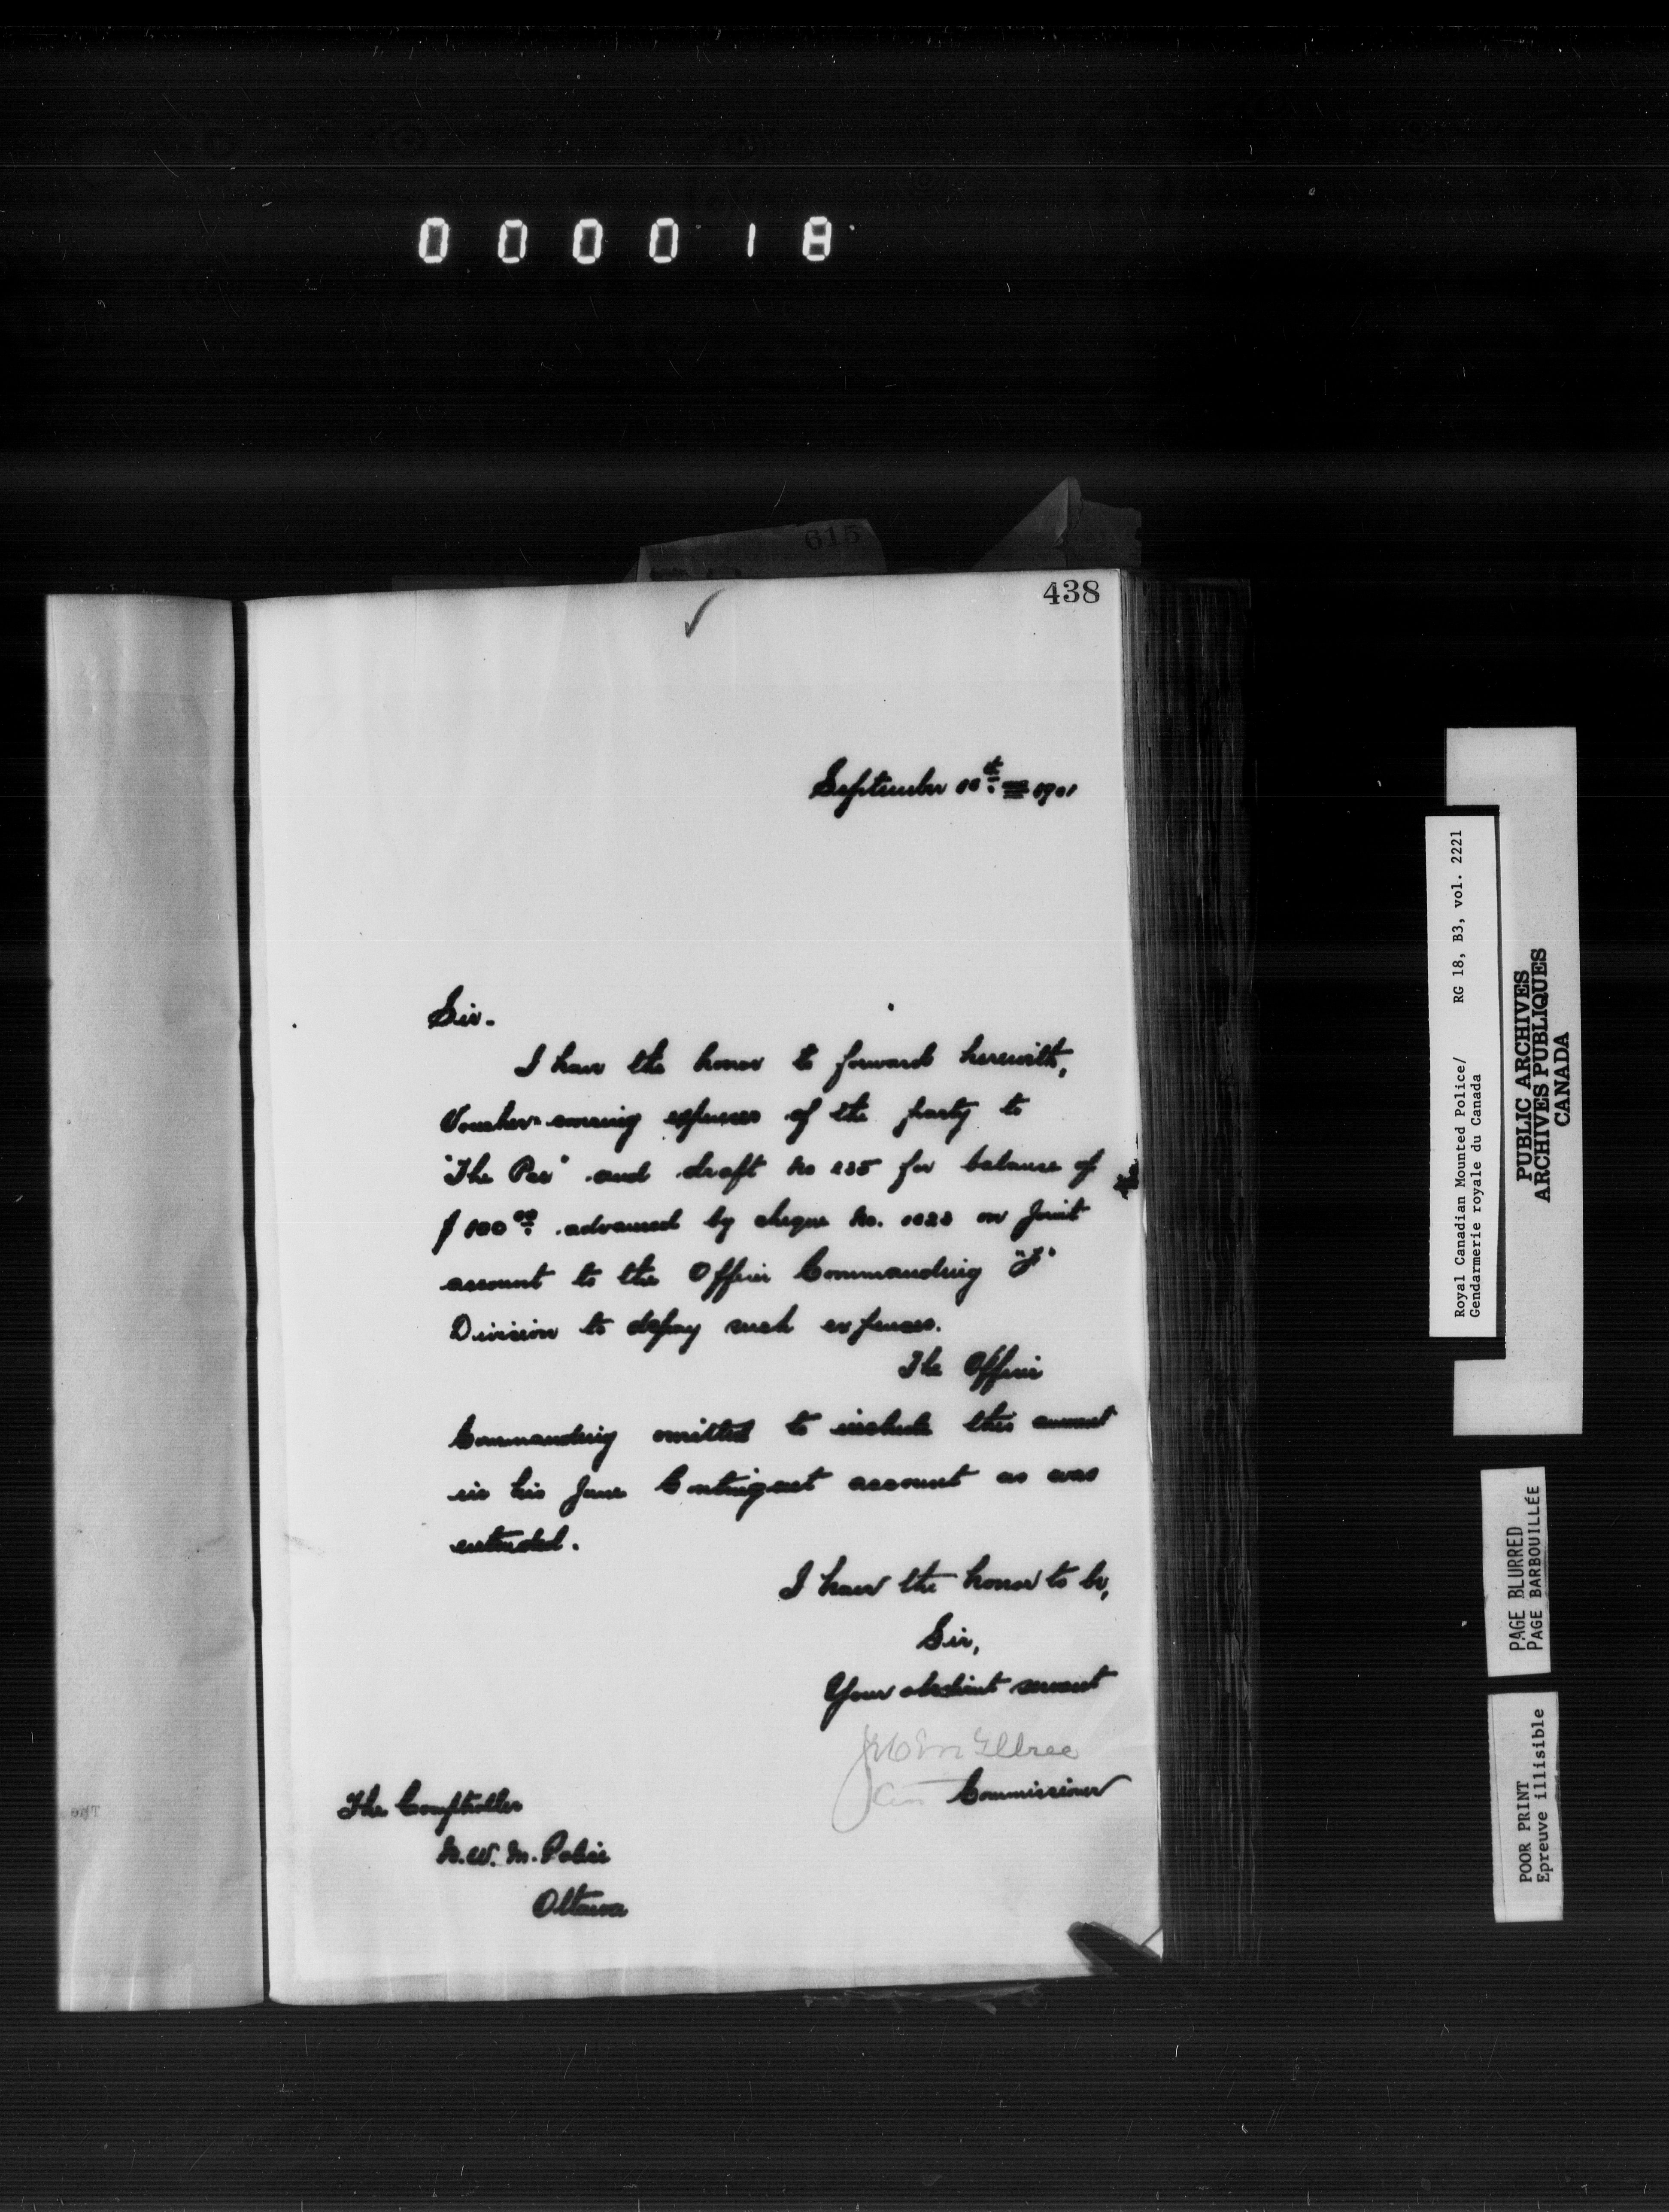 000018
615
438
September 10th 1901
Sir.
I have the honor to forward herewith,
Vouchers covering expenses of the party to
"The Pas" and draft No 235 for balance of
$100.00 advanced by cheque No. on Joint
account to the Officer Commanding "F"
Division to defray such expenses.
The Officer
Commanding omitted to include this amount
in his June Contingent account as was
intended.
I have the honor to be,
Sir,
Your obedient servant
J H McIllree
Commissioner
The Comptroller
N.W.M. Police
Ottawa
Royal Canadian Mounted Police/ RG 18, B3, vol. 2221
Gendarmerie royale du Canada
PUBLIC ARCHIVES
ARCHIVES PUBLIQUES
CANADA
PAGE BLURRED
PAGE BARBOUILLÉE
POOR PRINT
Epreuve illisible